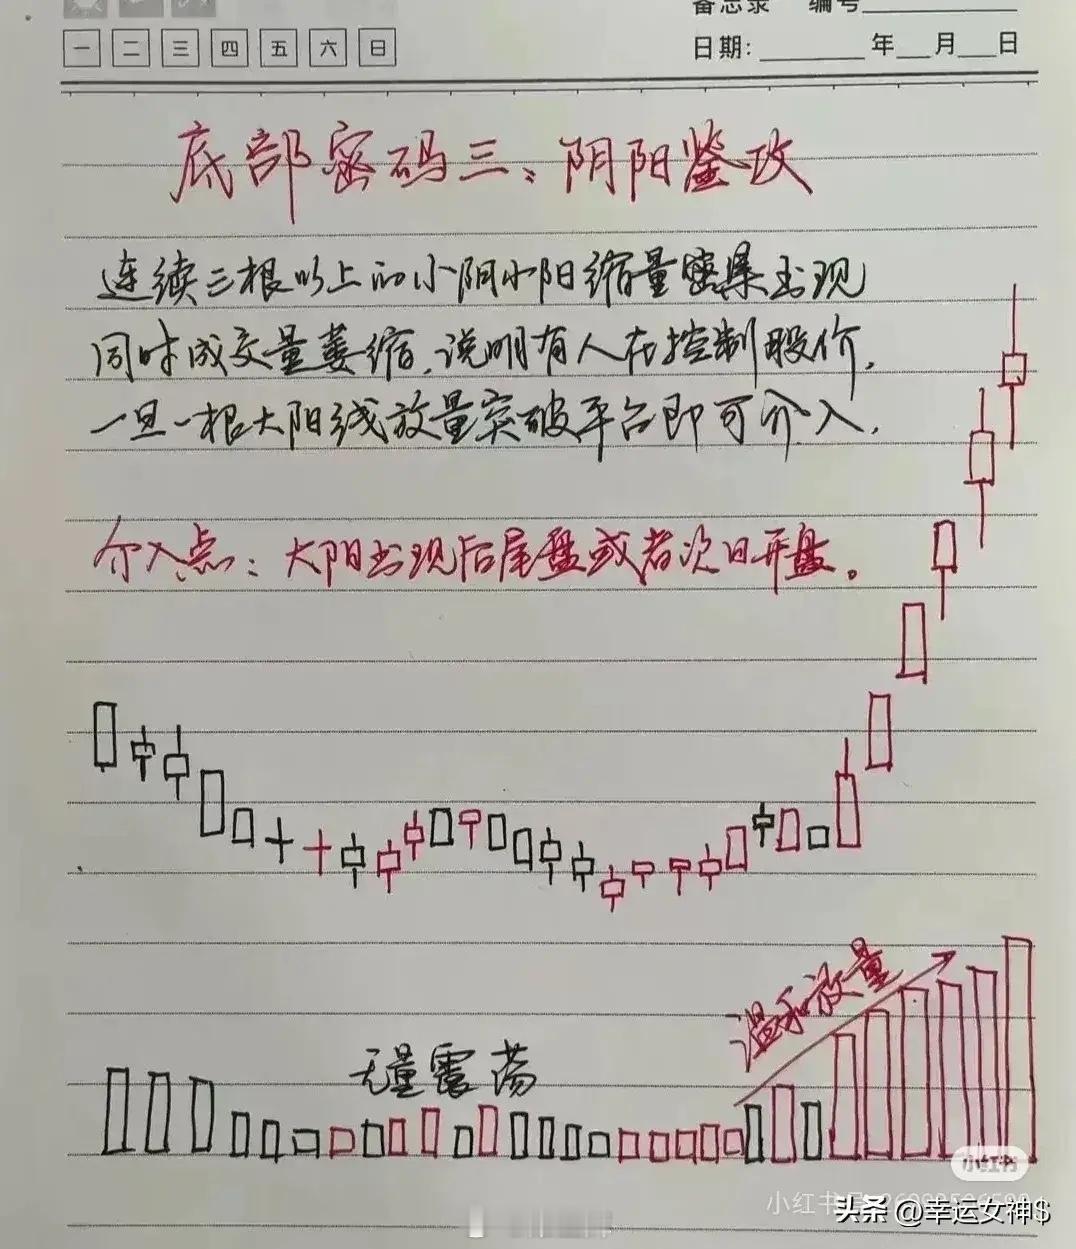 备忘录 编号
一 二 三 四 五 六 日
日期: 年 月 日
底部密码三：阴阳鉴攻
连续三根以上的小阴小阳缩量密集出现
同时成交量萎缩，说明有人在控制股价，
一旦一根大阳线放量突破平台即可介入，
介入点：大阳出现后尾盘或者次日开盘。
温和放量
无量震荡
小红书
小红书号
头条 @幸运女神$